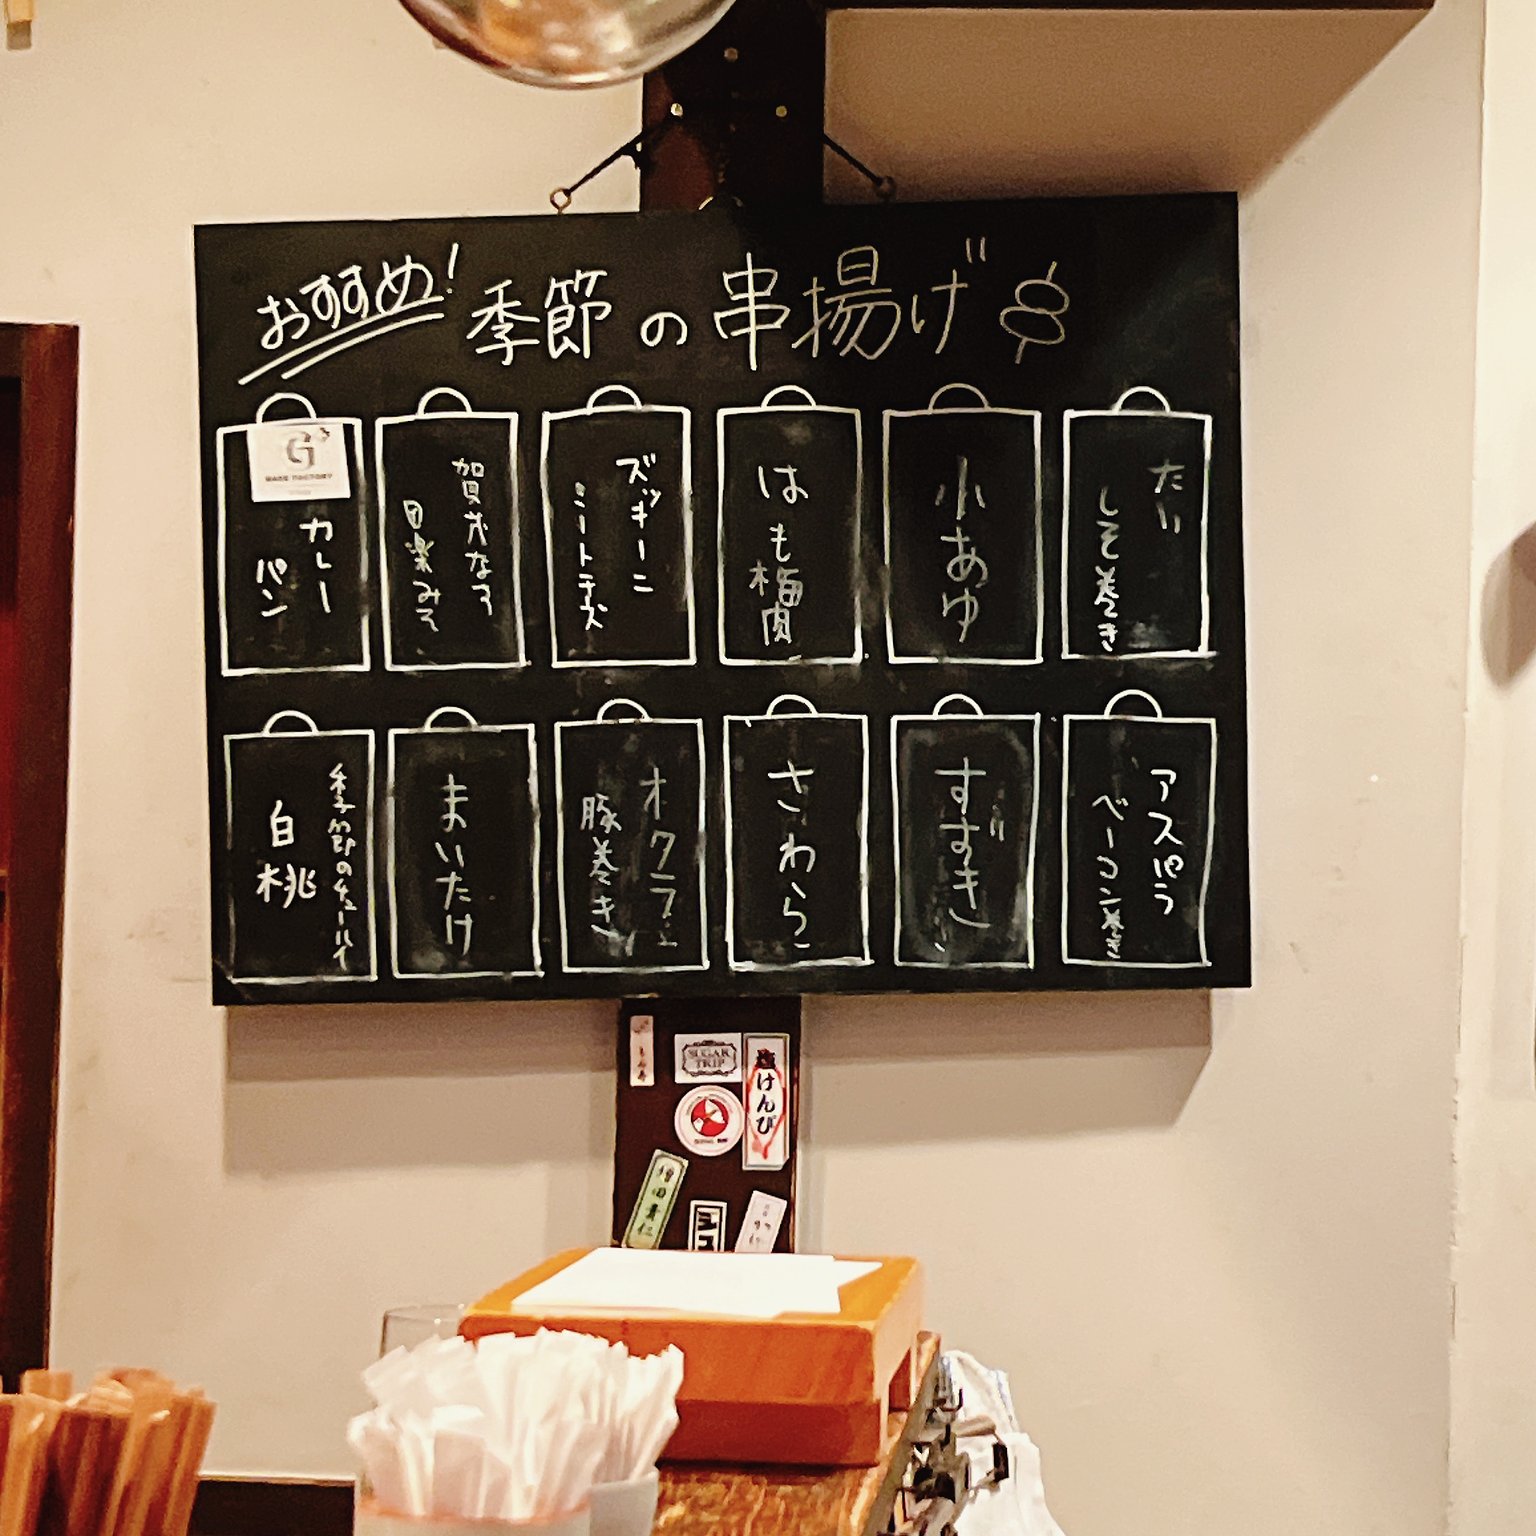 おすすめ!
季節の串揚げ
たい
しそ巻き
小あゆ
はも梅肉
ズッキーニ
ミートチーズ
賀茂なす
田楽みそ
G
BAKE FACTORY
カレー
パン
アスパラ
ベーコン巻き
すずき
さわら
オクラ
豚巻き
まいたけ
季節のチューハイ
白桃
SUGAR
TRIP
塩けんぴ